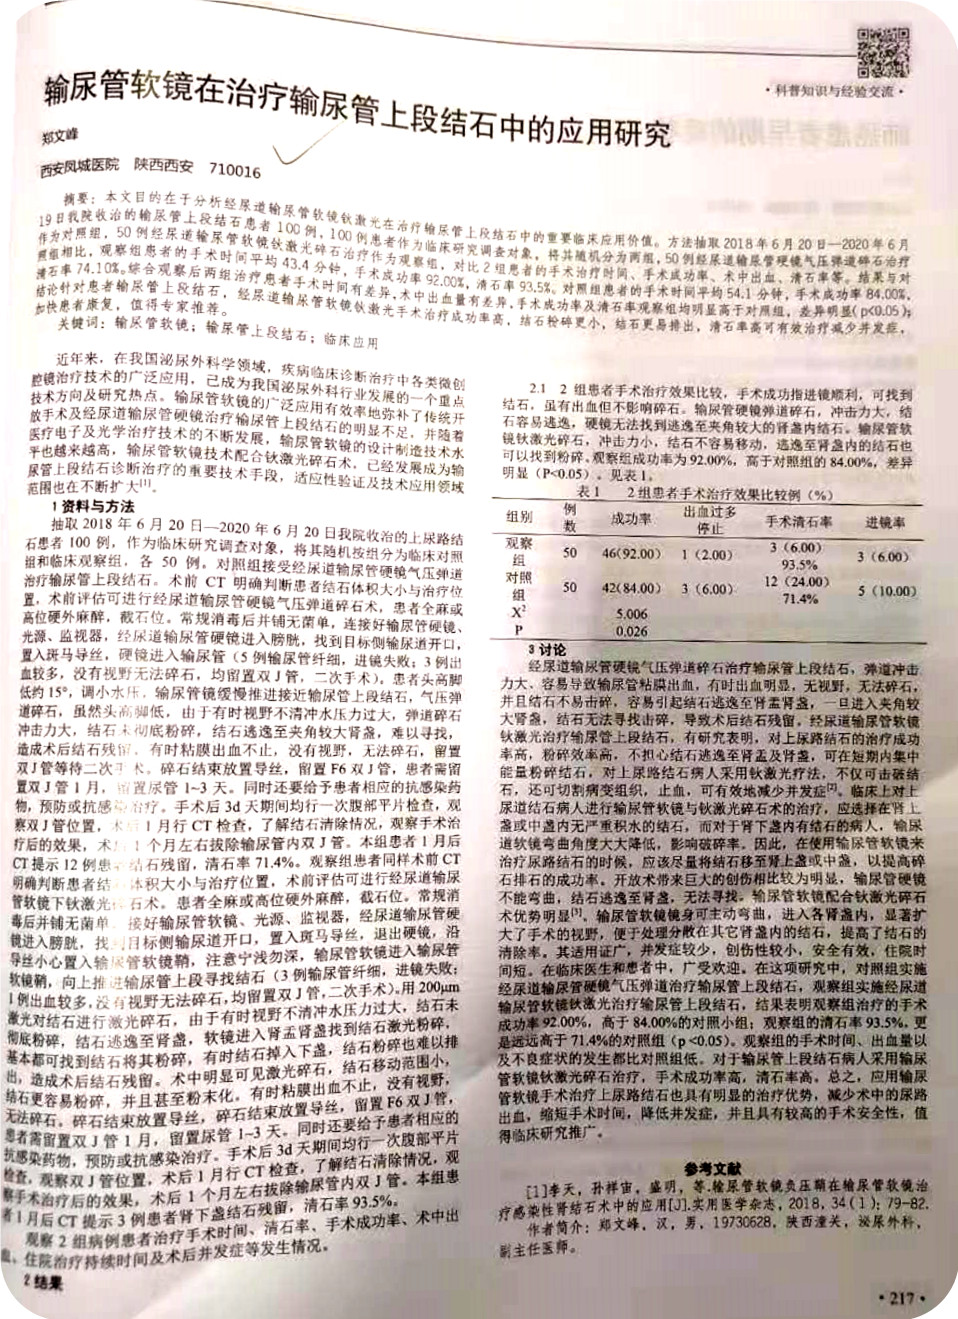 ·科普知识与经验交流·
输尿管软镜在治疗输尿管上段结石中的应用研究
郑文峰
西安凤城医院 陕西西安 710016
摘要：本文目的在于分析经尿道输尿管软镜钬激光在治疗输尿管上段结石中的重要临床应用价值。方法抽取2018年6月20日—2020年6月
19日我院收治的输尿管上段结石患者100例，100例患者作为临床研究调查对象，将其随机分为两组，50例经尿道输尿管硬镜气压弹道碎石治疗
作为对照组，50例经尿道输尿管软镜钬激光碎石治疗作为观察组，对比2组患者的手术治疗时间、手术成功率、术中出血、清石率等。结果与对
照组相比，观察组患者的手术时间平均43.4分钟，手术成功率92.00%，清石率93.5%。对照组患者的手术时间平均54.1分钟，手术成功率84.00%，
清石率74.10%。综合观察后两组治疗患者手术时间有差异，术中出血量有差异，手术成功率及清石率观察组均明显高于对照组，差异明显(p<0.05)；
结论针对患者输尿管上段结石，经尿道输尿管软镜钬激光手术治疗成功率高，结石粉碎更小，结石更易排出，清石率高可有效治疗减少并发症，
加快患者康复，值得专家推荐。
关键词：输尿管软镜；输尿管上段结石；临床应用
近年来，在我国泌尿外科学领域，疾病临床诊断治疗中各类微创
腔镜治疗技术的广泛应用，已成为我国泌尿外科行业发展的一个重点
技术方向及研究热点。输尿管软镜的广泛应用有效率地弥补了传统开
放手术及经尿道输尿管硬镜治疗输尿管上段结石的明显不足，并随着
医疗电子及光学治疗技术的不断发展，输尿管软镜的设计制造技术水
平也越来越高，输尿管软镜技术配合钬激光碎石术，已经发展成为输
尿管上段结石诊断治疗的重要技术手段，适应性验证及技术应用领域
范围也在不断扩大[1]。
1 资料与方法
抽取2018年6月20日—2020年6月20日我院收治的上尿路结
石患者100例，作为临床研究调查对象，将其随机按组分为临床对照
组和临床观察组，各50例。对照组接受经尿道输尿管硬镜气压弹道
治疗输尿管上段结石。术前CT明确判断患者结石体积大小与治疗位
置，术前评估可进行经尿道输尿管硬镜气压弹道碎石术，患者全麻或
高位硬外麻醉，截石位。常规消毒后并铺无菌单，连接好输尿管硬镜、
光源、监视器，经尿道输尿管硬镜进入膀胱，找到目标侧输尿道开口，
置入斑马导丝，硬镜进入输尿管（5例输尿管纤细，进镜失败；3例出
血较多，没有视野无法碎石，均留置双J管，二次手术），患者头高脚
低约15°，调小水压，输尿管镜缓慢推进接近输尿管上段结石，气压弹
道碎石，虽然头高脚低，由于有时视野不清冲水压力过大，弹道碎石
冲击力大，结石未彻底粉碎，结石逃逸至夹角较大肾盏，难以寻找，
造成术后结石残留。有时粘膜出血不止，没有视野，无法碎石，留置
双J管等待二次手术。碎石结束放置导丝，留置F6双J管，患者需留
置双J管1月，留置尿管1~3天。同时还要给予患者相应的抗感染药
物，预防或抗感染治疗。手术后3d天期间均行一次腹部平片检查，观
察双J管位置，术后1月行CT检查，了解结石清除情况，观察手术治
疗后的效果，术后1个月左右拔除输尿管内双J管。本组患者1月后
CT提示12例患者结石残留，清石率71.4%。观察组患者同样术前CT
明确判断患者结石体积大小与治疗位置，术前评估可进行经尿道输尿
管软镜下钬激光碎石术。患者全麻或高位硬外麻醉，截石位。常规消
毒后并铺无菌单，接好输尿管软镜、光源、监视器，经尿道输尿管硬
镜进入膀胱，找到目标侧输尿道开口，置入斑马导丝，退出硬镜，沿
导丝小心置入输尿管软镜鞘，注意宁浅勿深，输尿管软镜进入输尿管
软镜鞘，向上推进输尿管上段寻找结石（3例输尿管纤细，进镜失败；
1例出血较多，没有视野无法碎石，均留置双J管，二次手术）。用200μm
激光对结石进行激光碎石，由于有时视野不清冲水压力过大，结石未
彻底粉碎，结石逃逸至肾盏，软镜进入肾盂肾盏找到结石激光粉碎，
基本都可找到结石将其粉碎，有时结石掉入下盏，结石粉碎也难以排
出，造成术后结石残留。术中明显可见激光碎石，结石移动范围小，
结石更容易粉碎，并且甚至粉末化。有时粘膜出血不止，没有视野，
无法碎石。碎石结束放置导丝，碎石结束放置导丝，留置F6双J管，
患者需留置双J管1月，留置尿管1~3天。同时还要给予患者相应的
抗感染药物，预防或抗感染治疗。手术后3d天期间均行一次腹部平片
检查，观察双J管位置，术后1月行CT检查，了解结石清除情况，观
察手术治疗后的效果，术后1个月左右拔除输尿管内双J管。本组患
者1月后CT提示3例患者肾下盏结石残留，清石率93.5%。
观察2组病例患者治疗手术时间、清石率、手术成功率、术中出
血、住院治疗持续时间及术后并发症等发生情况。
2 结果
2.1 2组患者手术治疗效果比较，手术成功指进镜顺利，可找到
结石，虽有出血但不影响碎石。输尿管硬镜弹道碎石，冲击力大，结
石容易逃逸，硬镜无法找到逃逸至夹角较大的肾盏内结石。输尿管软
镜钬激光碎石，冲击力小，结石不容易移动，逃逸至肾盏内的结石也
可以找到粉碎。观察组成功率为92.00%，高于对照组的84.00%，差异
明显（P<0.05）。见表1。
表1 2组患者手术治疗效果比较例（%）
组别 例数 成功率 出血过多停止 手术清石率 进镜率
观察组 50 46(92.00) 1 (2.00) 3 (6.00) 93.5% 3 (6.00)
对照组 50 42(84.00) 3 (6.00) 12 (24.00) 71.4% 5 (10.00)
X² 5.006
P 0.026
3 讨论
经尿道输尿管硬镜气压弹道碎石治疗输尿管上段结石，弹道冲击
力大、容易导致输尿管粘膜出血，有时出血明显，无视野，无法碎石，
并且结石不易击碎，容易引起结石逃逸至肾盂肾盏，一旦进入夹角较
大肾盏，结石无法寻找击碎，导致术后结石残留，经尿道输尿管软镜
钬激光治疗输尿管上段结石，有研究表明，对上尿路结石的治疗成功
率高，粉碎效率高，不担心结石逃逸至肾盂及肾盏，可在短期内集中
能量粉碎结石，对上尿路结石病人采用钬激光疗法，不仅可击破结
石，还可切割病变组织，止血，可有效地减少并发症[2]。临床上对上
尿道结石病人进行输尿管软镜与钬激光碎石术的治疗，应选择在肾上
盏或中盏内无严重积水的结石，而对于肾下盏内有结石的病人，输尿
道软镜弯曲角度大大降低，影响破碎率。因此，在使用输尿管软镜来
治疗尿路结石的时候，应该尽量将结石移至肾上盏或中盏，以提高碎
石排石的成功率。开放术带来巨大的创伤相比较为明显，输尿管硬镜
不能弯曲，结石逃逸至肾盏，无法寻找。输尿管软镜配合钬激光碎石
术优势明显[3]。输尿管软镜镜身可主动弯曲，进入各肾盏内，显著扩
大了手术的视野，便于处理分散在其它肾盏内的结石，提高了结石的
清除率。其适用证广，并发症较少，创伤性较小，安全有效，住院时
间短。在临床医生和患者中，广受欢迎。在这项研究中，对照组实施
经尿道输尿管硬镜气压弹道治疗输尿管上段结石，观察组实施经尿道
输尿管软镜钬激光治疗输尿管上段结石，结果表明观察组治疗的手术
成功率92.00%，高于84.00%的对照小组；观察组的清石率93.5%，更
是远远高于71.4%的对照组(p<0.05)。观察组的手术时间、出血量以
及不良症状的发生都比对照组低。对于输尿管上段结石病人采用输尿
管软镜钬激光碎石治疗，手术成功率高，清石率高，总之，应用输尿
管软镜手术治疗上尿路结石也具有明显的治疗优势，减少术中的尿路
出血，缩短手术时间，降低并发症，并且具有较高的手术安全性，值
得临床研究推广。
参考文献
[1]李天，孙祥宙，盛明，等.输尿管软镜负压鞘在输尿管软镜治
疗感染性肾结石术中的应用[J].实用医学杂志，2018，34(1)：79-82.
作者简介：郑文峰，汉，男，19730628，陕西潼关，泌尿外科，
副主任医师。
·217·